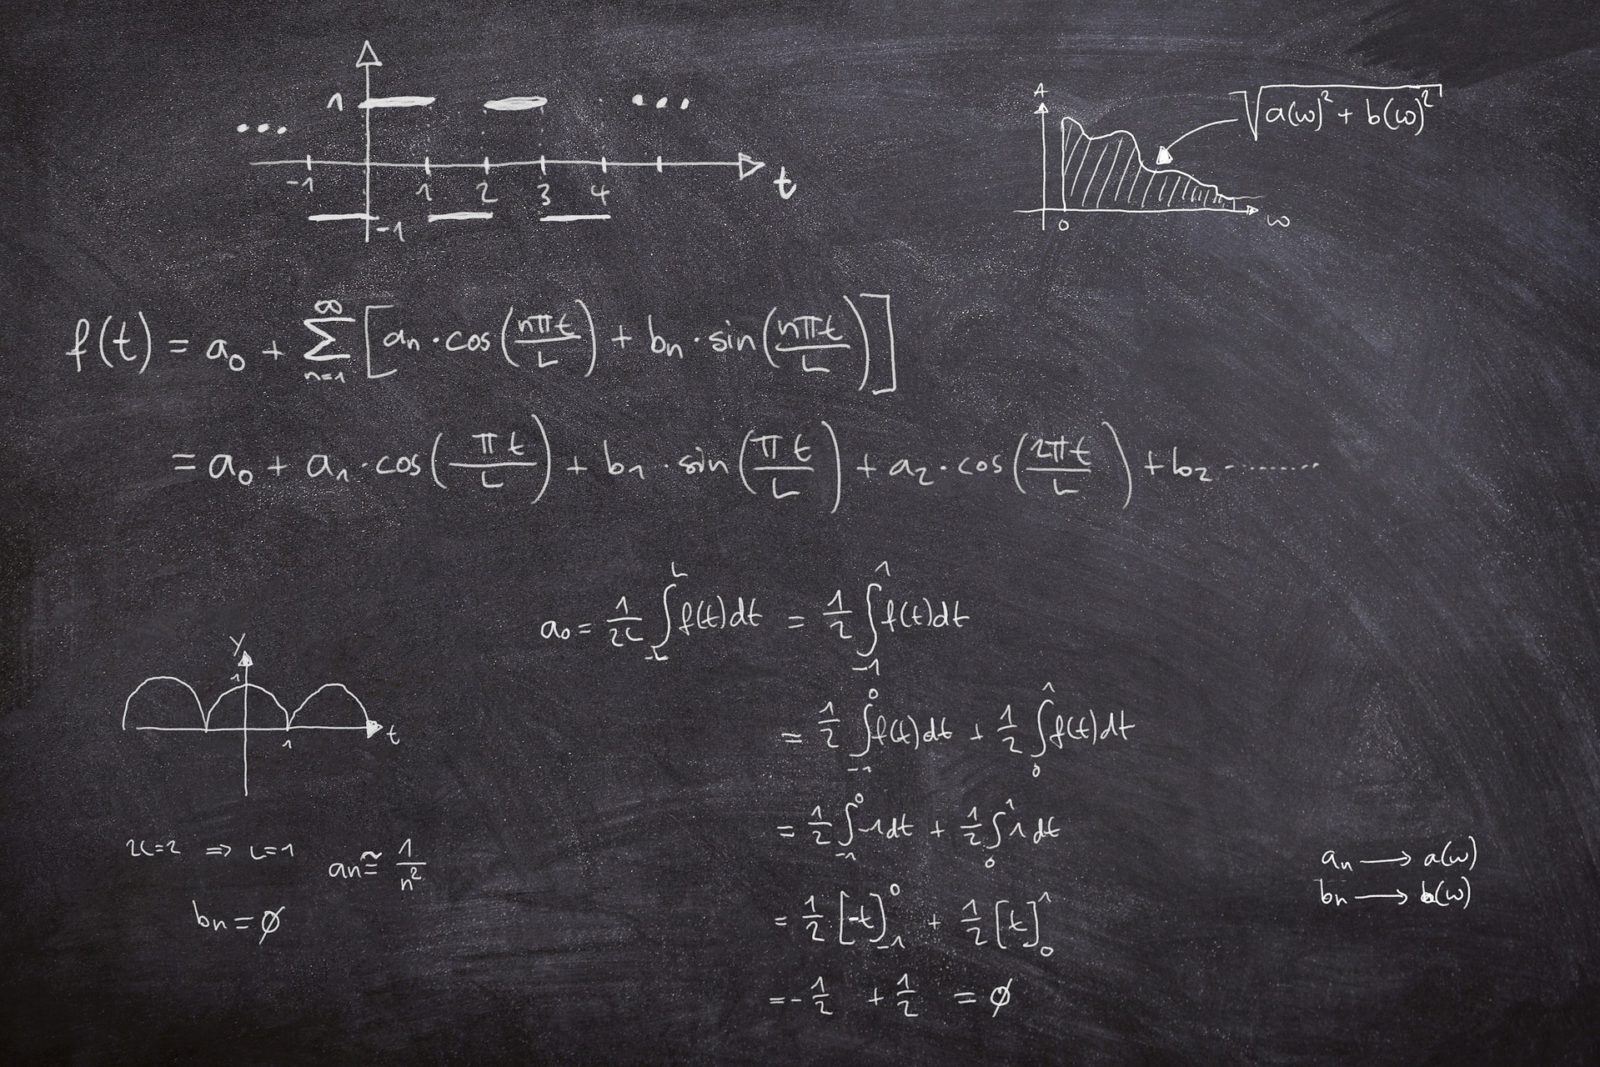 1
t
-1 1 2 3 4
-1
A
√(a(ω)² + b(ω)²)
0 ω
f(t) = a₀ + ∑ₙ₌₁^∞ [aₙ · cos(nπt/L) + bₙ · sin(nπt/L)]
= a₀ + a₁ · cos(πt/L) + b₁ · sin(πt/L) + a₂ · cos(2πt/L) + b₂ ········
a₀ = 1/2L ∫_-L^L f(t)dt = 1/2 ∫_-1^1 f(t)dt
= 1/2 ∫_-1^0 f(t)dt + 1/2 ∫_0^1 f(t)dt
= 1/2 ∫_-1^0 -1dt + 1/2 ∫_0^1 1dt
= 1/2 [-t]_-1^0 + 1/2 [t]_0^1
= - 1/2 + 1/2 = ∅
y
1
t
1
2L=2 ⇒ L=1 aₙ ≅ 1/n²
bₙ = ∅
aₙ → a(ω)
bₙ → b(ω)